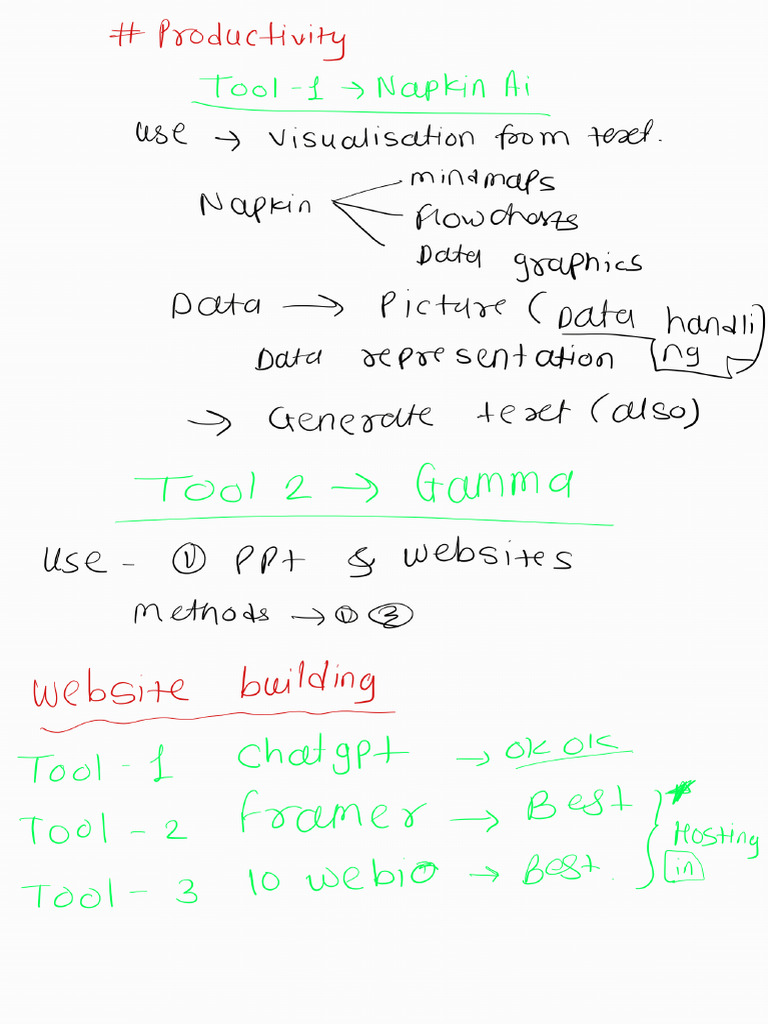 # Productivity
Tool-1 → Napkin Ai
use → visualisation from text.
Napkin
mindmaps
flowcharts
Data graphics
Data → Picture (Data handli
ng
Data representation
→ Generate text (also)
Tool 2 → Gamma
use - ① PPt & websites
methods → ① ②
website building
Tool-1 Chatgpt → ok ok
Tool-2 framer → Best
Tool-3 10 webio → Best.
Hosting
in